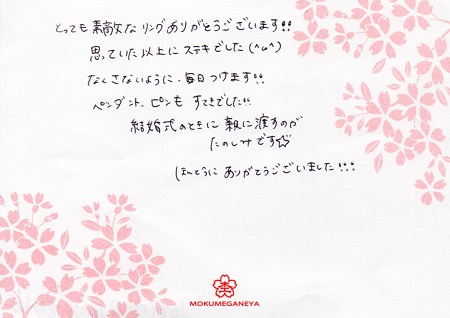 とっても素敵なリングありがとうございます!!
思っていた以上にステキでした(^u^)
なくさないように、毎日つけます!!
ペンダント、ピンも すてきでした!!
結婚式のときに 親に渡すのが
たのしみです☆
ほんとうに ありがとうございました!!!
MOKUMEGANEYA